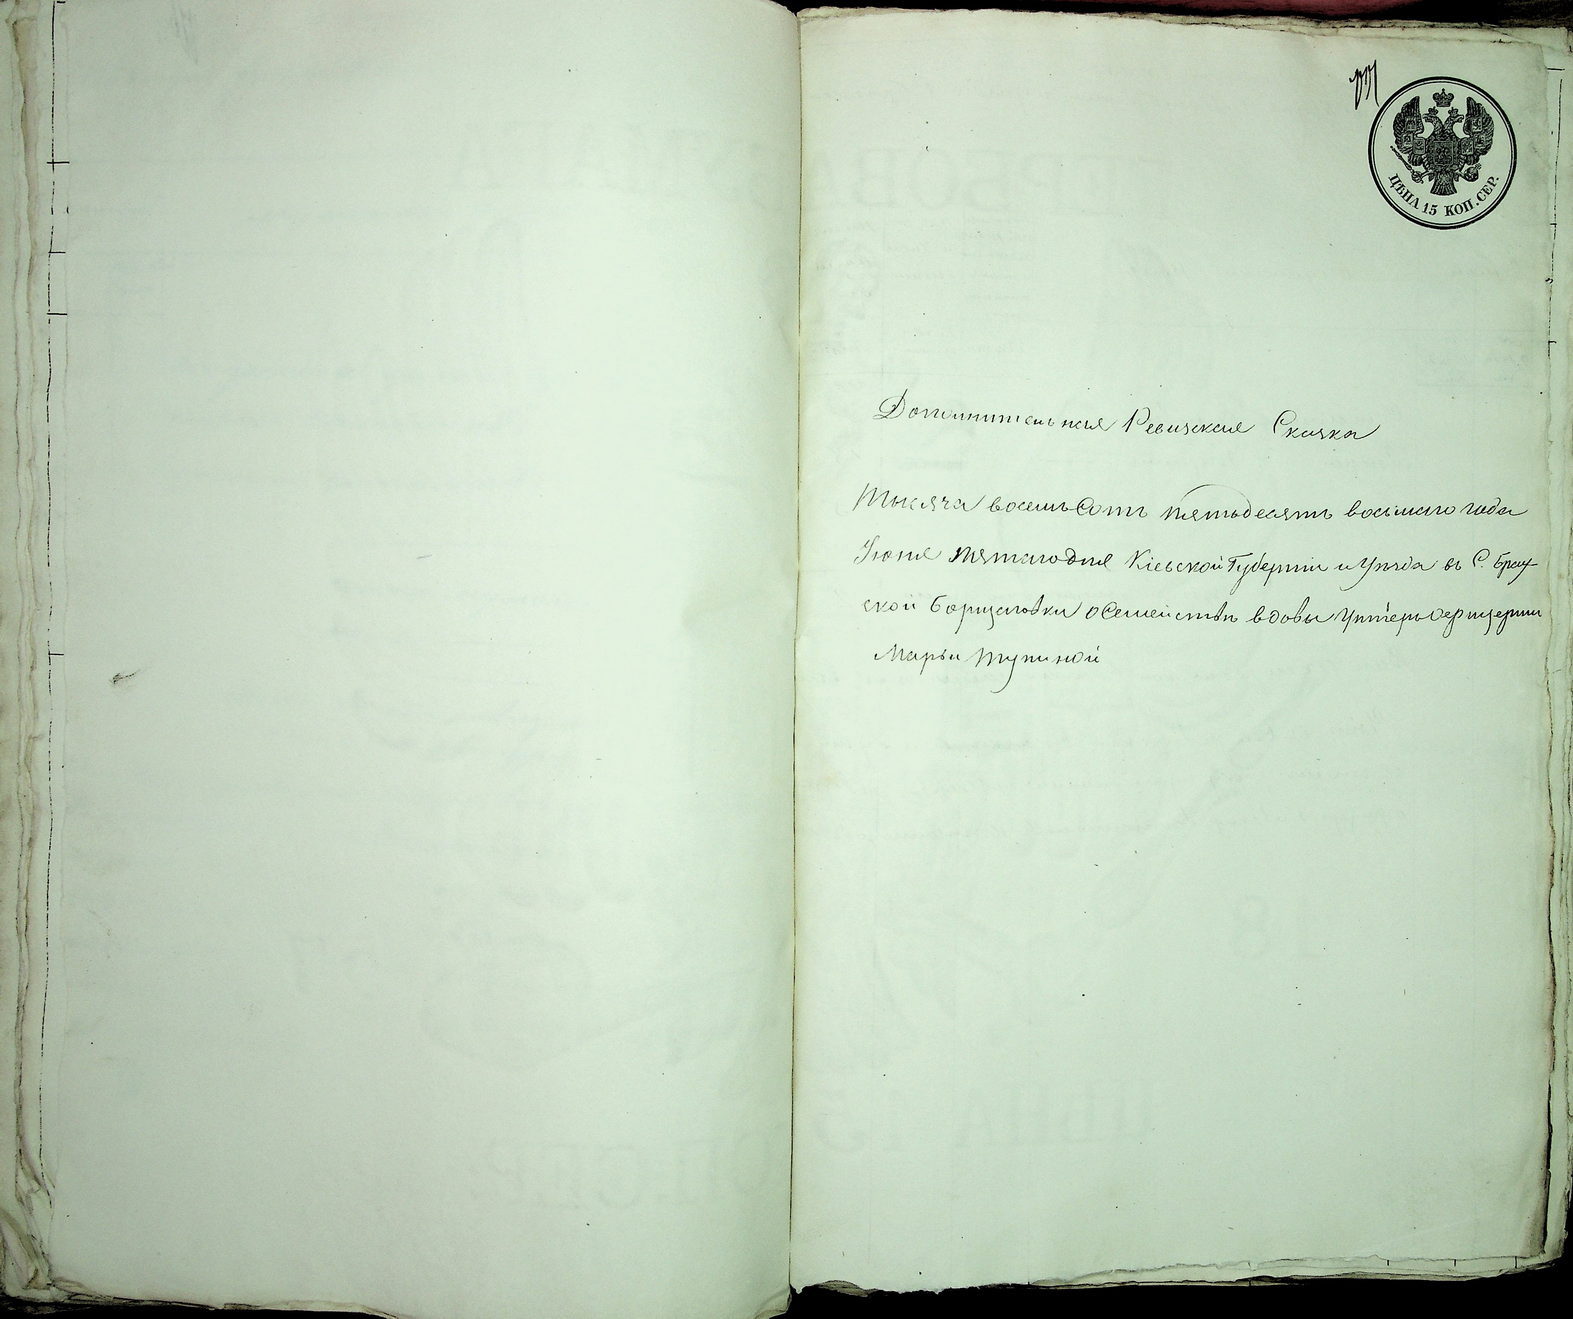 ЦѢНА 15 КОП. СЕР.
Дополнительная Ревизская Сказка
Тысяча восемьсотъ пятьдесятъ восьмаго года
Іюня пятаго дня Кіевской Губерніи и Уѣзда въ С.
ской Борщаговки о Семействѣ вдовы Унтеръ Офицерши
Марьи Тупиной